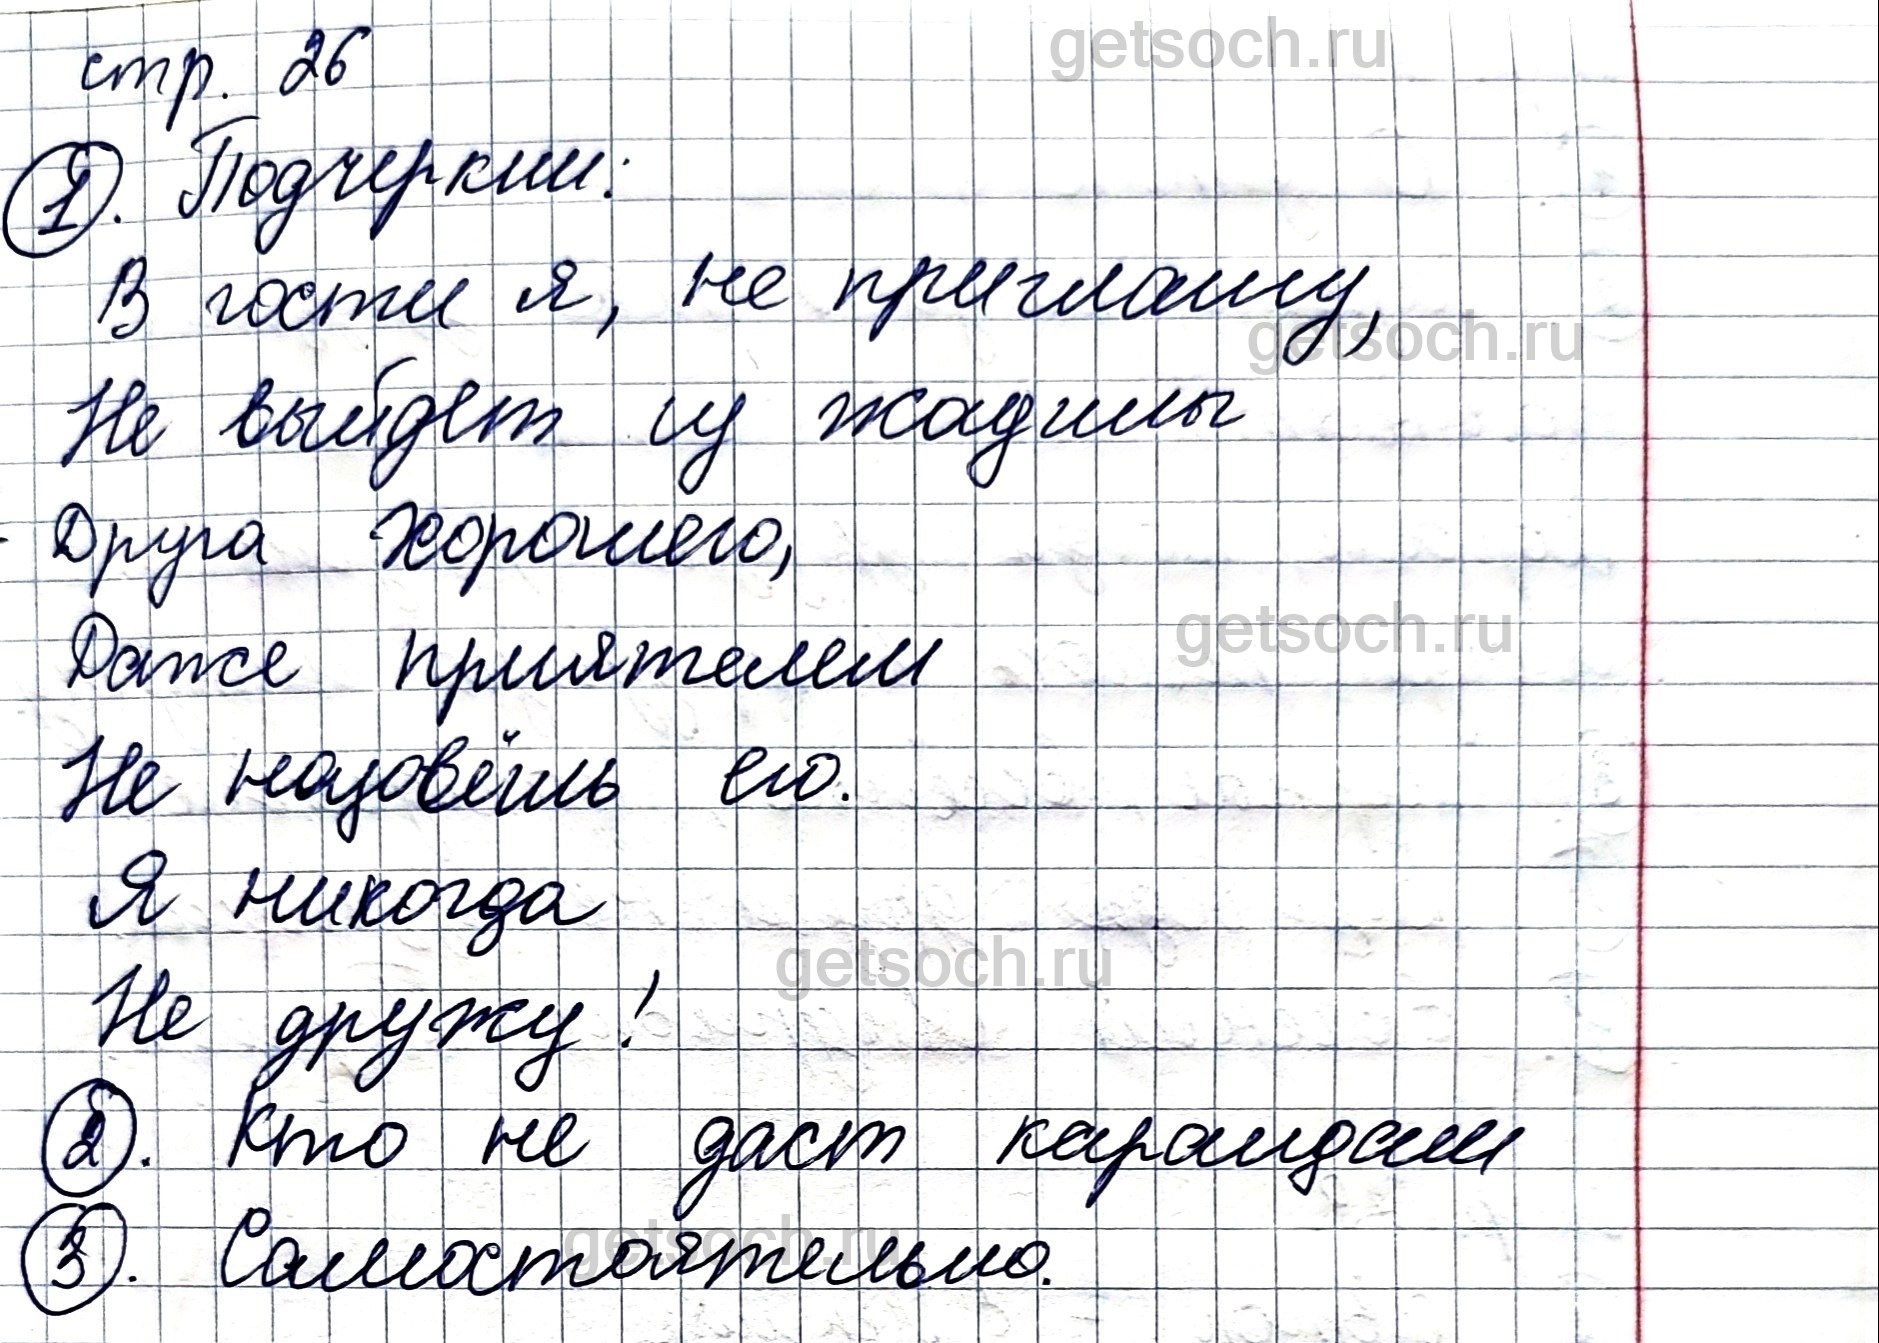 getsoch.ru
стр. 26
1. Подчеркни:
В гости я, не приглашу,
getsoch.ru
Не выйдет из жадины
Друга хорошего,
getsoch.ru
Даже приятелем
Не назовёшь его.
Я никогда
getsoch.ru
Не дружу!
2. Кто не даст карандаш
getsoch.ru
3. Самостоятельно.